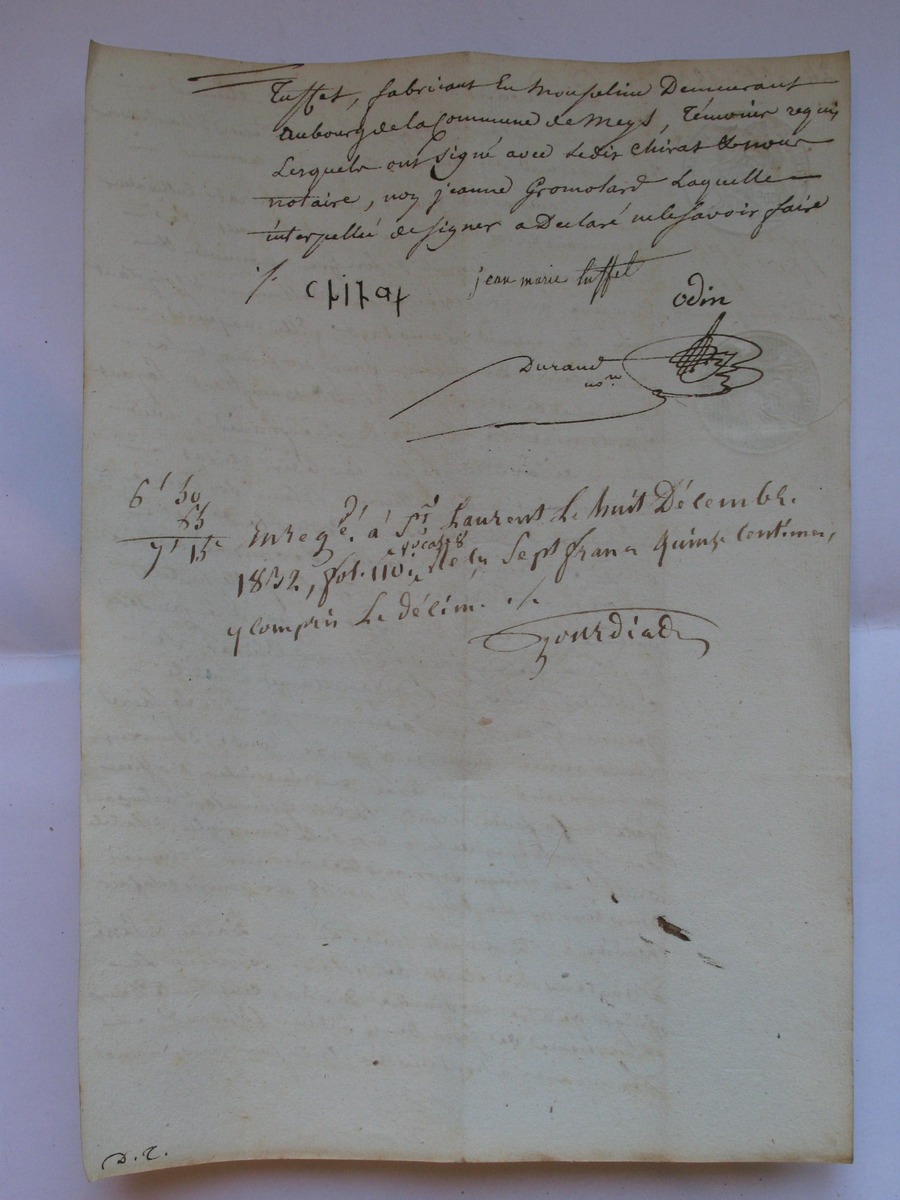 Tuffet, fabricant En Mousseline Demeurant
au bourg de la Commune de Meys, Témoins requis
Lesquels ont signé avec Ledit Chirat & nous
notaire, non jeanne Gromolard Laquelle
interpellée de signer a Declaré ne le savoir faire
./.
chirat jean marie tuffet odin
Durand
no.re
6f 50
65
7f 15c
Enregé. à St Laurent Le huit Décembre
1832, fol. 110 vo cases 8 Reçu Sept francs quinze Centimes,
y Compris Le décime ./.
D. T.